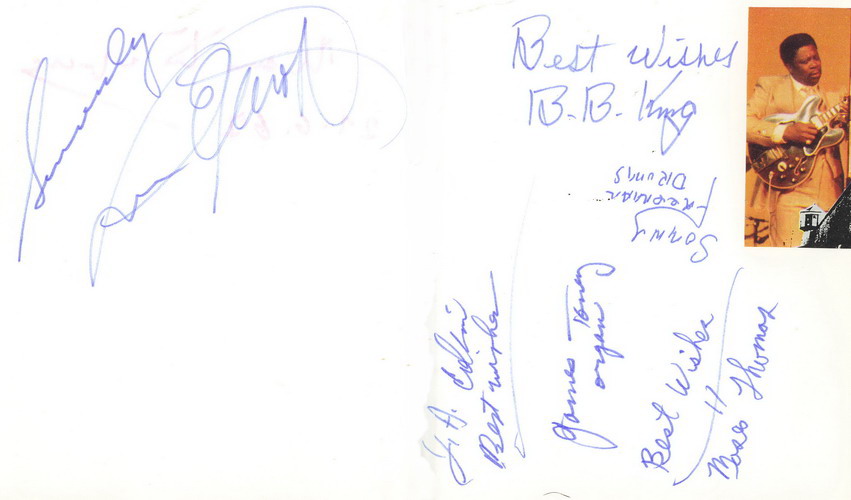 Sincerely
Best Wishes
B.B. King
Sonny
Freeman
DRUMS
Best wishes
James Toney
organ
Best Wishes
Moses Thomas